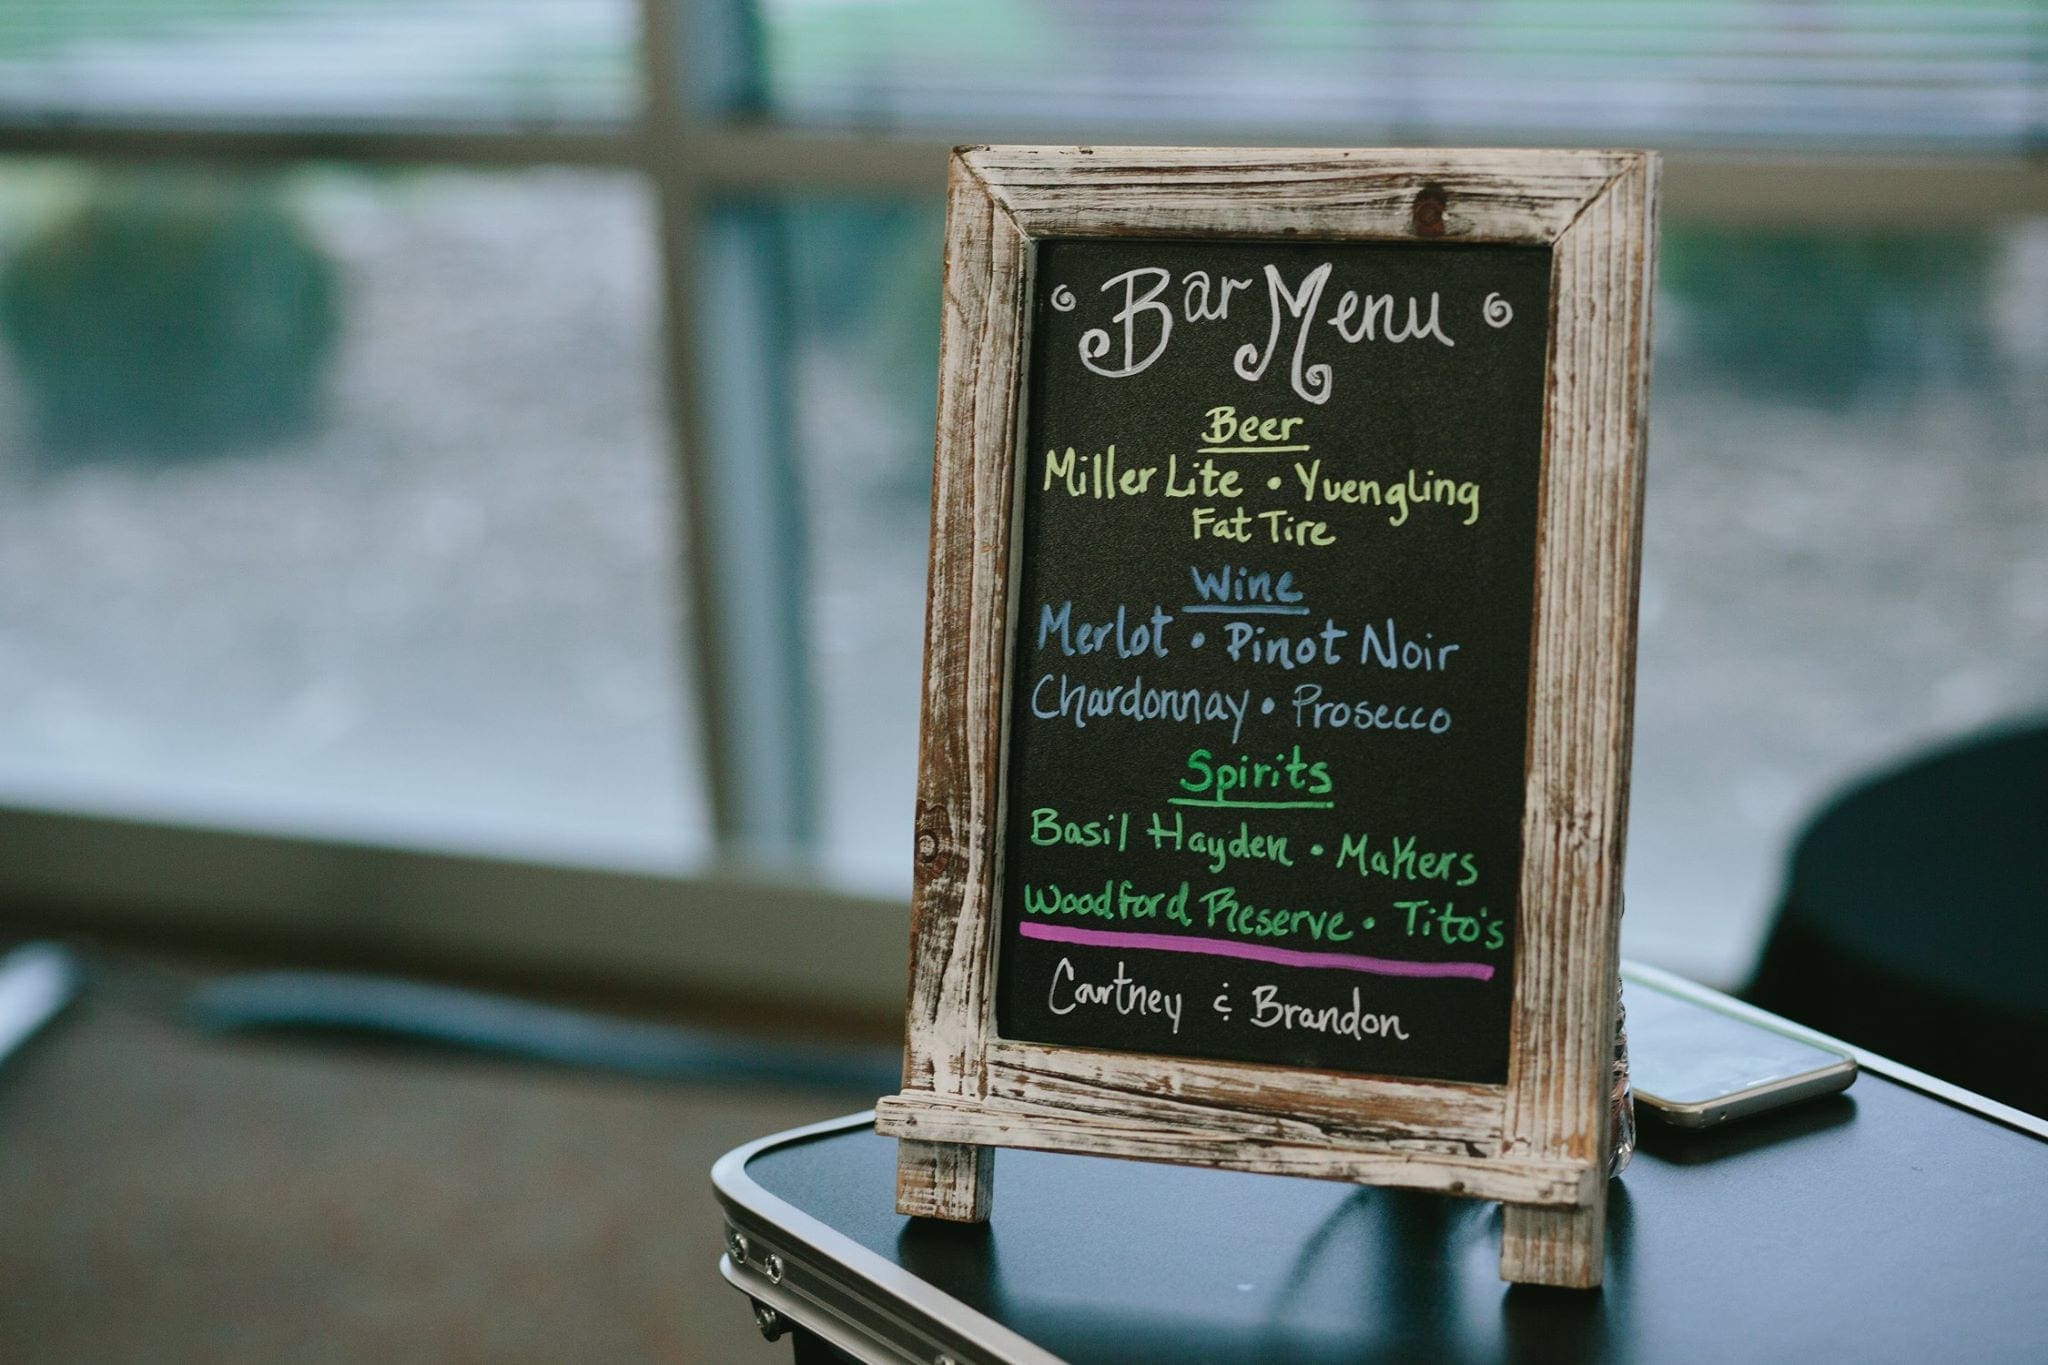 Bar Menu
Beer
Miller Lite • Yuengling
Fat Tire
Wine
Merlot • Pinot Noir
Chardonnay • Prosecco
Spirits
Basil Hayden • Makers
Woodford Reserve • Tito's
Courtney & Brandon